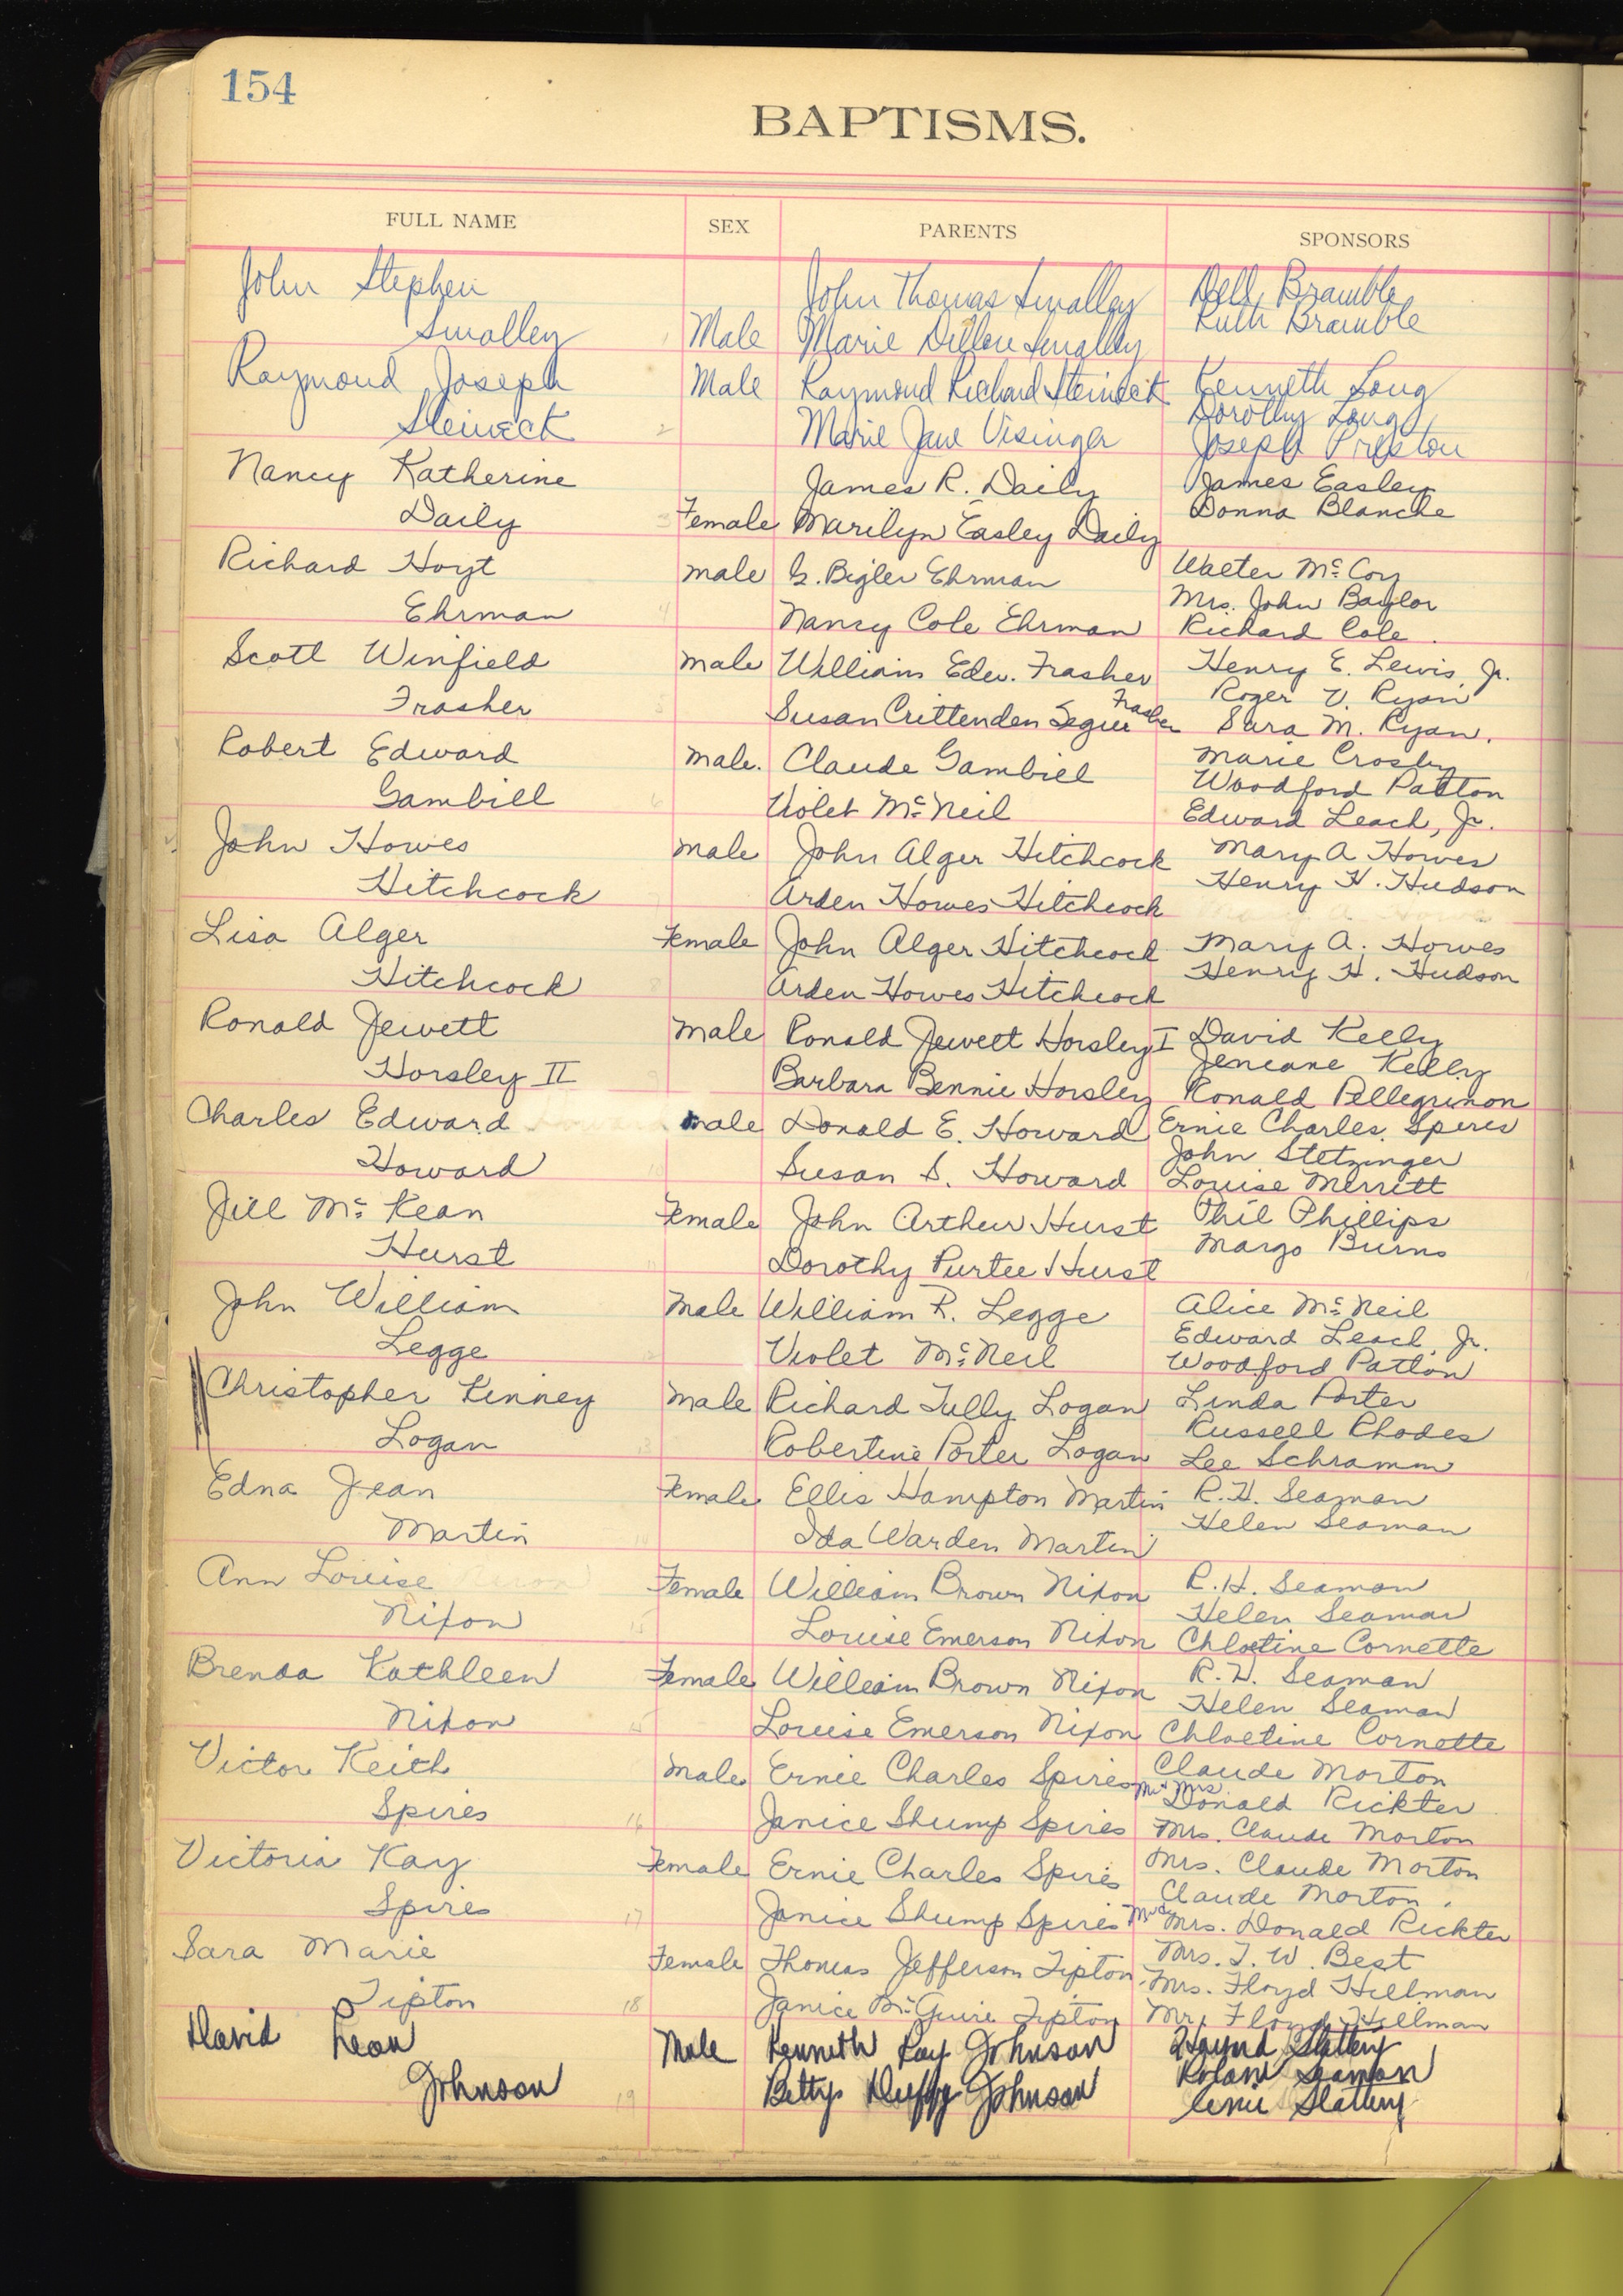 154
BAPTISMS.
FULL NAME SEX PARENTS SPONSORS
John Stephen John Thomas Smalley Dell Bramble
Smalley 1 Male Marie Dillon Smalley Ruth Bramble
Raymond Joseph Male Raymond Richard Steineck Kenneth Long
Dorothy Long
Steineck 2 Marie Jane Visinger Joseph Preston
Nancy Katherine James R. Daily James Easley
Daily 3 Female Marilyn Easley Daily Donna Blanche
Richard Hoyt male G. Bigler Ehrman Walter McCoy
Mrs. John Baylor
Ehrman 4 Nancy Cole Ehrman Richard Cole.
Scott Winfield male William Edw. Frasher Henry E. Lewis, Jr.
Roger V. Ryan
Frasher 5 Susan Crittenden Segur Frasher Sara M. Ryan.
Robert Edward male. Claude Gambill Marie Crosby
Woodford Patton
Gambill 6 Violet McNeil Edward Leach, Jr.
John Howes male John Alger Hitchcock Mary A Howes
Hitchcock Arden Howes Hitchcock Henry H. Hudson
Lisa Alger Female John Alger Hitchcock Mary A. Howes
Hitchcock 8 Arden Howes Hitchcock Henry H. Hudson
Ronald Jewett male Ronald Jewett Horsley I David Kelly
Jeneane Kelly
Horsley II 9 Barbara Bennie Horsley Ronald Pellegrinon
Charles Edward male Donald E. Howard Ernie Charles Spires
John Stetzinger
Howard 10 Susan S. Howard Louise Merritt
Jill McKean Female John Arthur Hurst Phil Phillips
Hurst Dorothy Purtee Hurst Margo Burns
John William male William R. Legge Alice McNeil
Edward Leach, Jr.
Legge 12 Violet McNeil Woodford Patton
Christopher Kinney male Richard Tully Logan Linda Porter
Russell Rhodes
Logan 13 Robertine Porter Logan Lee Schramm
Edna Jean Female Ellis Hampton Martin R. H. Seaman
Martin 14 Ida Warden Martin Helen Seaman
Ann Louise Female William Brown Nixon R. H. Seaman
Helen Seaman
Nixon 15 Louise Emerson Nixon Chloetine Cornette
Brenda Kathleen Female William Brown Nixon R. H. Seaman
Helen Seaman
Nixon 15 Louise Emerson Nixon Chloetine Cornette
Victor Keith male Ernie Charles Spires Claude Morton
Mr & Mrs. Donald Rickter
Spires 16 Janice Shump Spires Mrs. Claude Morton
Victoria Kay Female Ernie Charles Spires Mrs. Claude Morton
Claude Morton.
Spires 17 Janice Shump Spires Mr & Mrs. Donald Rickter
Sara Marie Female Thomas Jefferson Tipton Mrs. T. W. Best
Mrs. Floyd Hillman
Tipton 18 Janice McGuire Tipton Mr. Floyd Hillman
David Leon Male Kenneth Ray Johnson Slattery
Roland Seaman
Johnson 19 Betty Duffy Johnson Slattery